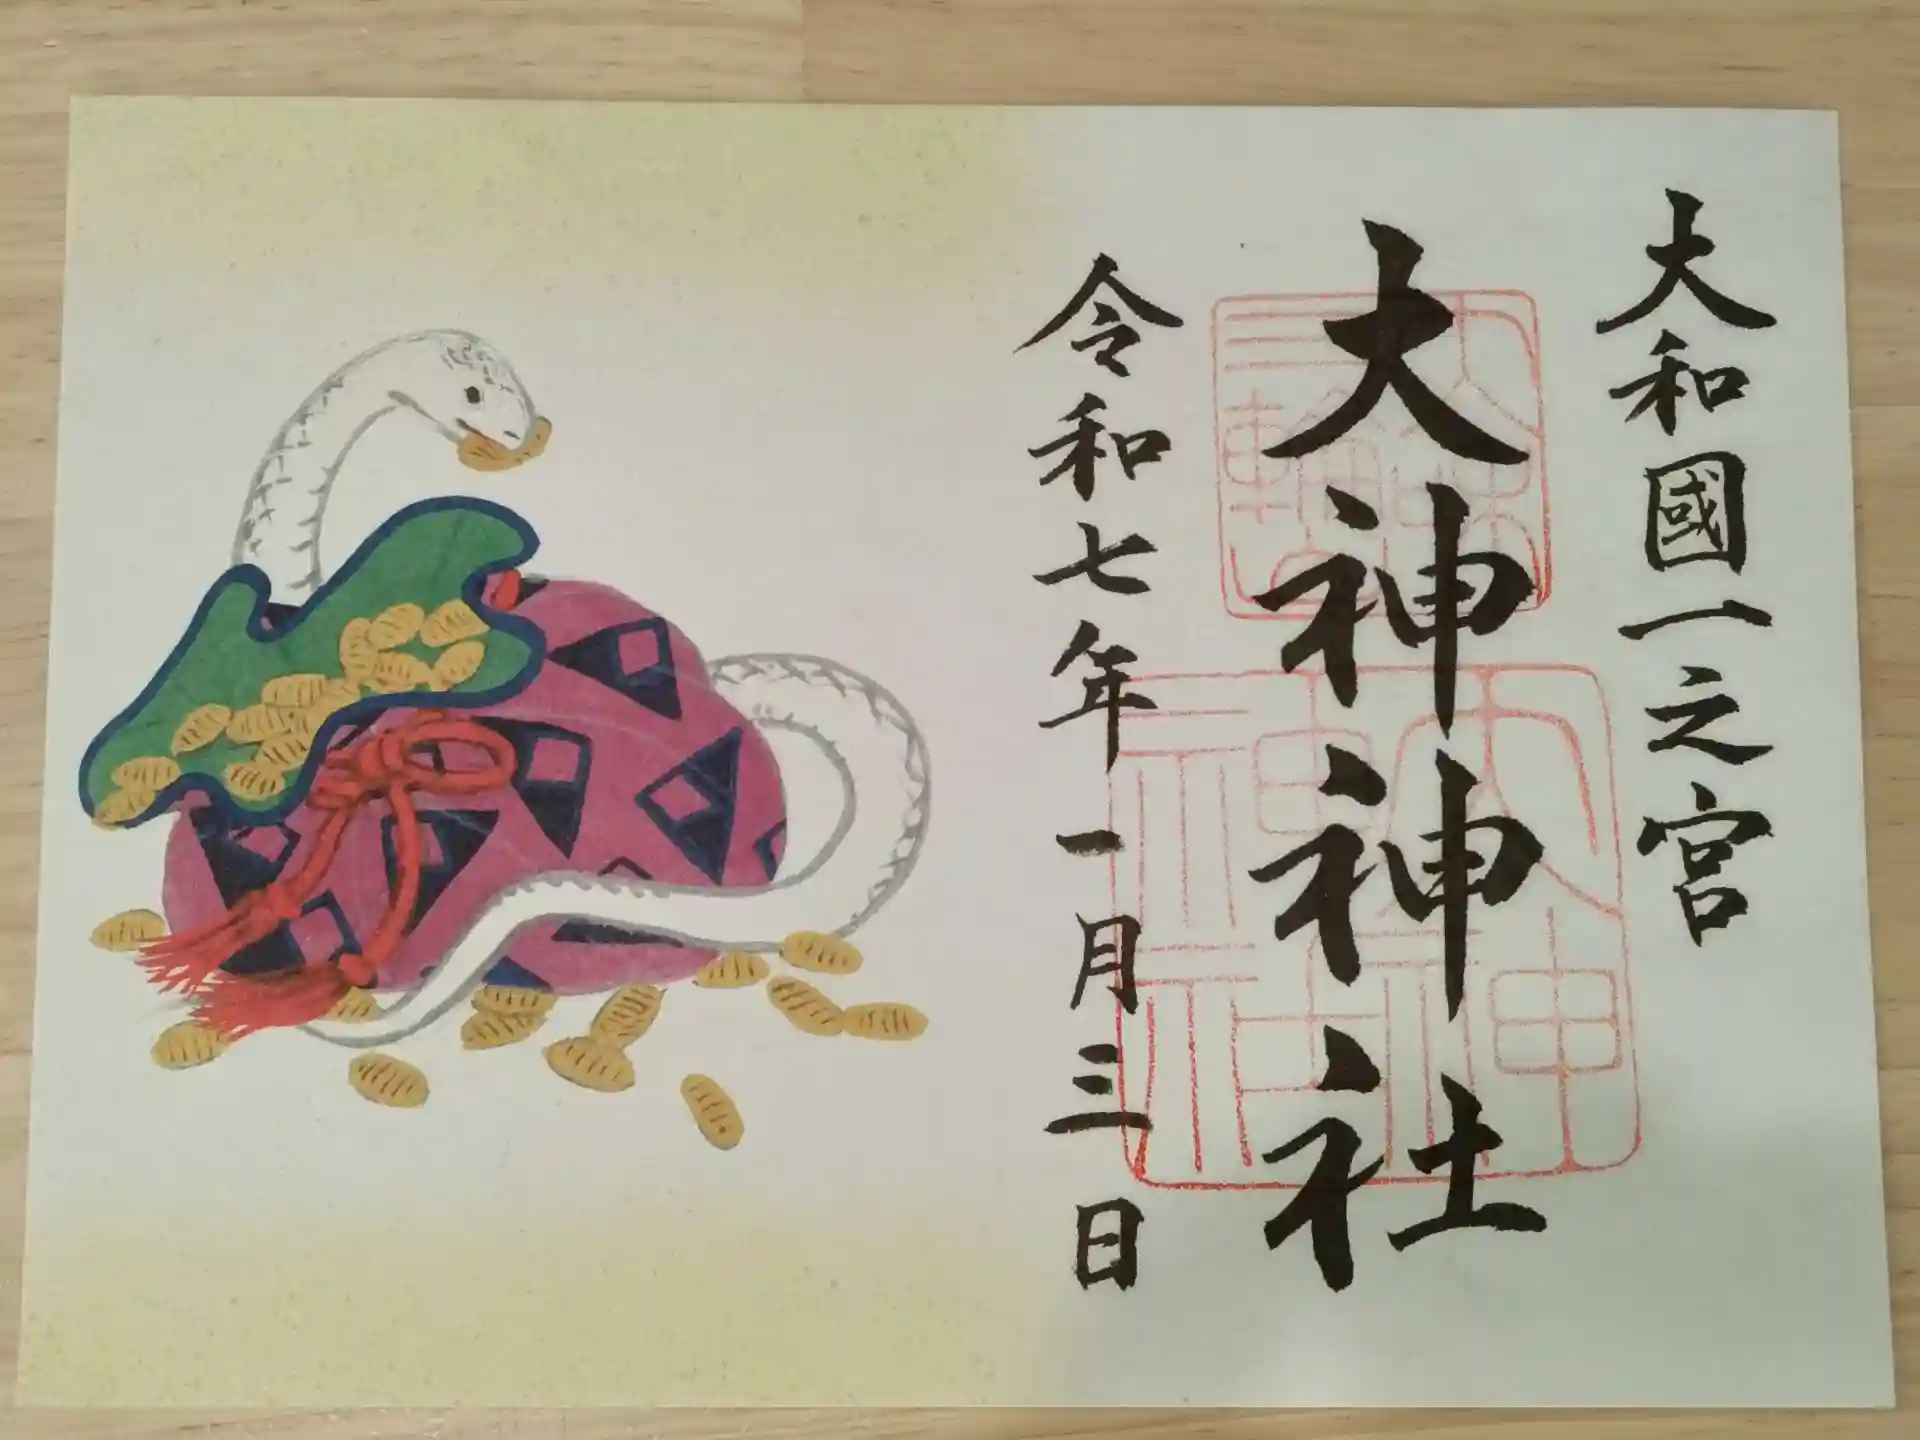 大和國一之宮
大神神社
大神神社
令和七年一月三日